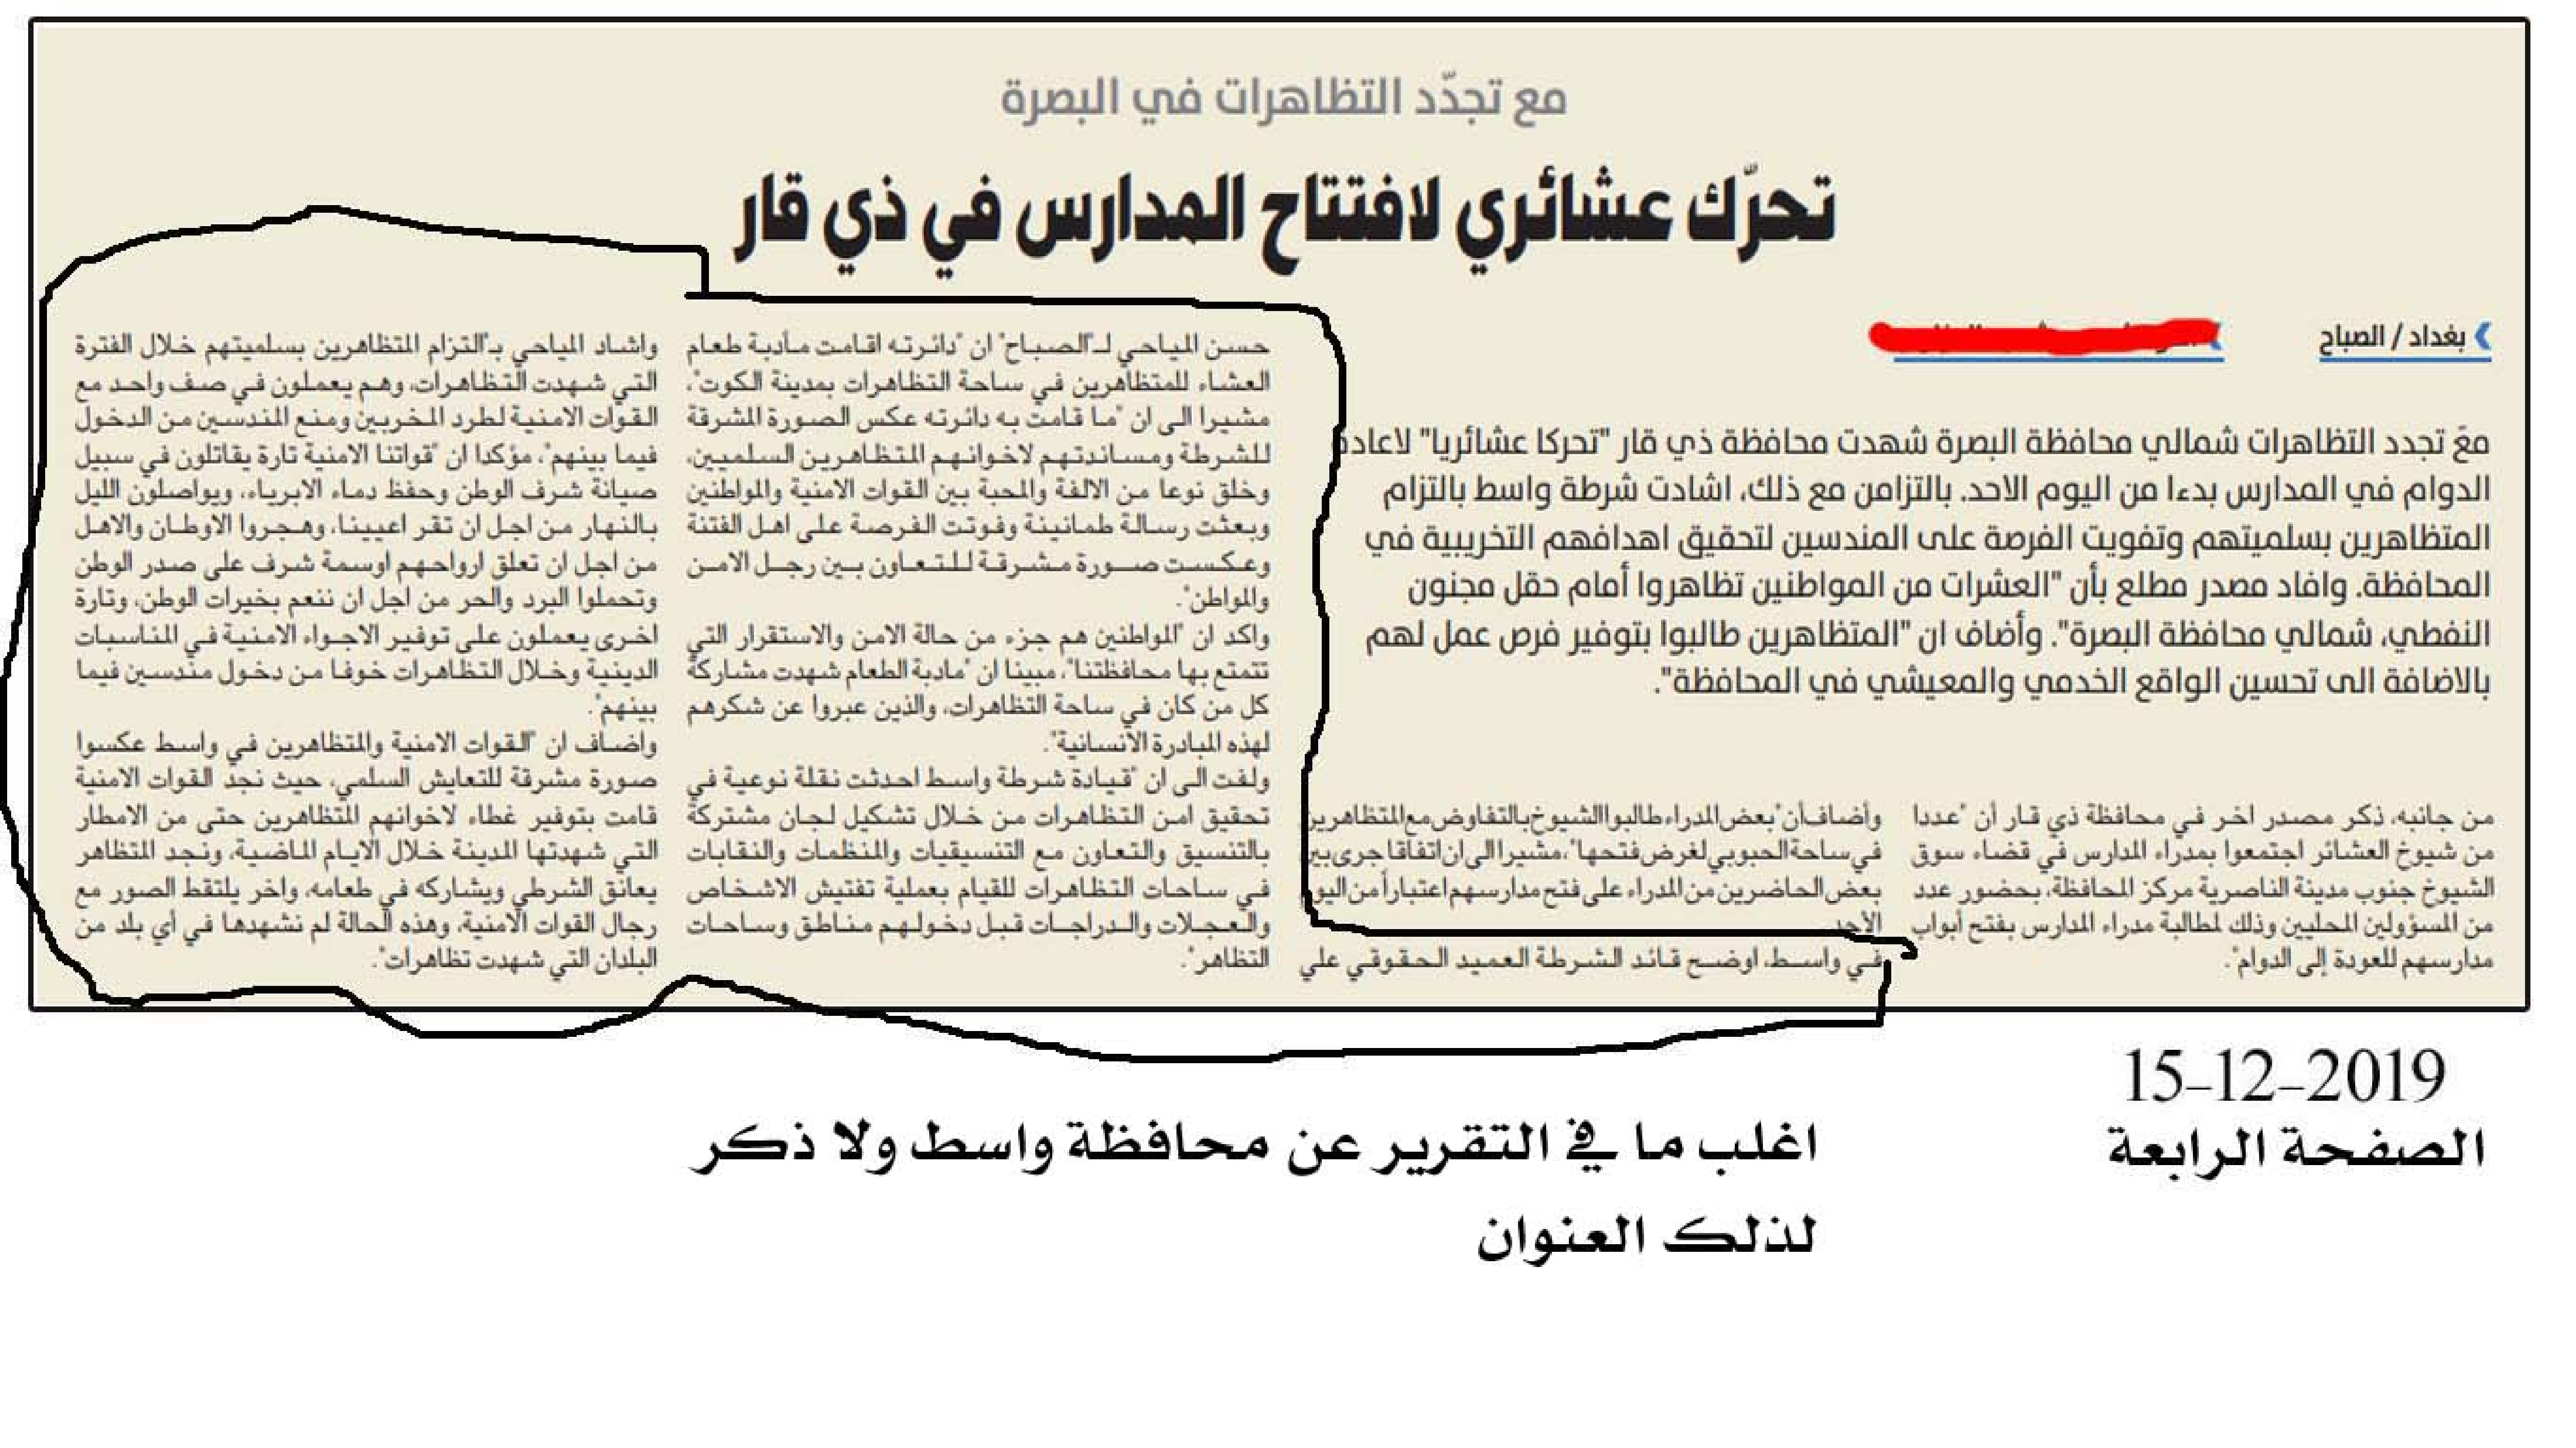 مع تجدّد التظاهرات في البصرة
تحرّك عشائري لافتتاح المدارس في ذي قار
بغداد / الصباح
معَ تجدد التظاهرات شمالي محافظة البصرة شهدت محافظة ذي قار "تحركا عشائريا" لاعادة
الدوام في المدارس بدءا من اليوم الاحد. بالتزامن مع ذلك، اشادت شرطة واسط بالتزام
المتظاهرين بسلميتهم وتفويت الفرصة على المندسين لتحقيق اهدافهم التخريبية في
المحافظة. وافاد مصدر مطلع بأن "العشرات من المواطنين تظاهروا أمام حقل مجنون
النفطي، شمالي محافظة البصرة". وأضاف ان "المتظاهرين طالبوا بتوفير فرص عمل لهم
بالاضافة الى تحسين الواقع الخدمي والمعيشي في المحافظة".
من جانبه، ذكر مصدر اخر في محافظة ذي قار أن "عددا
من شيوخ العشائر اجتمعوا بمدراء المدارس في قضاء سوق
الشيوخ جنوب مدينة الناصرية مركز المحافظة، بحضور عدد
من المسؤولين المحليين وذلك لمطالبة مدراء المدارس بفتح أبواب
مدارسهم للعودة إلى الدوام".
وأضاف أن "بعض المدراء طالبوا الشيوخ بالتفاوض مع المتظاهرين
في ساحة الحبوبي لغرض فتحها"، مشيرا الى ان اتفاقا جرى بين
بعض الحاضرين من المدراء على فتح مدارسهم اعتباراً من اليوم
الاحد.
في واسط، اوضح قائد الشرطة العميد الحقوقي علي
حسن المياحي لـ"الصباح" ان "دائرته اقامت مأدبة طعام
العشاء للمتظاهرين في ساحة التظاهرات بمدينة الكوت"،
مشيرا الى ان "ما قامت به دائرته عكس الصورة المشرقة
للشرطة ومساندتهم لاخوانهم المتظاهرين السلميين،
وخلق نوعا من الالفة والمحبة بين القوات الامنية والمواطنين
وبعثت رسالة طمانينة وفوتت الفرصة على اهل الفتنة
وعكست صورة مشرقة للتعاون بين رجل الامن
والمواطن".
واكد ان "المواطنين هم جزء من حالة الامن والاستقرار التي
تتمتع بها محافظتنا"، مبينا ان "مادبة الطعام شهدت مشاركة
كل من كان في ساحة التظاهرات، والذين عبروا عن شكرهم
لهذه المبادرة الانسانية".
ولفت الى ان "قيادة شرطة واسط احدثت نقلة نوعية في
تحقيق امن التظاهرات من خلال تشكيل لجان مشتركة
بالتنسيق والتعاون مع التنسيقيات والمنظمات والنقابات
في ساحات التظاهرات للقيام بعملية تفتيش الاشخاص
والعجلات والدراجات قبل دخولهم مناطق وساحات
التظاهر".
واشاد المياحي بـ"التزام المتظاهرين بسلميتهم خلال الفترة
التي شهدت التظاهرات، وهم يعملون في صف واحد مع
القوات الامنية لطرد المخربين ومنع المندسين من الدخول
فيما بينهم"، مؤكدا ان "قواتنا الامنية تارة يقاتلون في سبيل
صيانة شرف الوطن وحفظ دماء الابرياء، ويواصلون الليل
بالنهار من اجل ان تقر اعيينا، وهجروا الاوطان والاهل
من اجل ان تعلق ارواحهم اوسمة شرف على صدر الوطن
وتحملوا البرد والحر من اجل ان ننعم بخيرات الوطن، وتارة
اخرى يعملون على توفير الاجواء الامنية في المناسبات
الدينية وخلال التظاهرات خوفا من دخول مندسين فيما
بينهم".
واضاف ان "القوات الامنية والمتظاهرين في واسط عكسوا
صورة مشرقة للتعايش السلمي، حيث نجد القوات الامنية
قامت بتوفير غطاء لاخوانهم المتظاهرين حتى من الامطار
التي شهدتها المدينة خلال الايام الماضية، ونجد المتظاهر
يعانق الشرطي ويشاركه في طعامه، واخر يلتقط الصور مع
رجال القوات الامنية، وهذه الحالة لم نشهدها في أي بلد من
البلدان التي شهدت تظاهرات".
15-12-2019
الصفحة الرابعة
اغلب ما في التقرير عن محافظة واسط ولا ذكر
لذلك العنوان